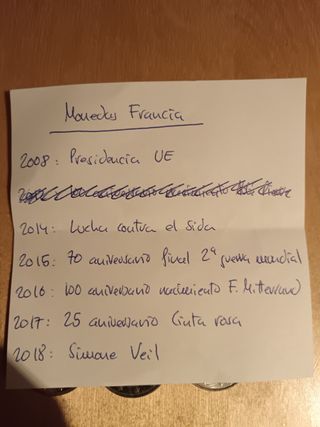 Monedas Francia
2008: Presidencia UE
2014: Lucha contra el sida
2015: 70 aniversario final 2ª guerra mundial
2016: 100 aniversario nacimiento F. Mitterrand
2017: 25 aniversario Cinta rosa
2018: Simone Veil